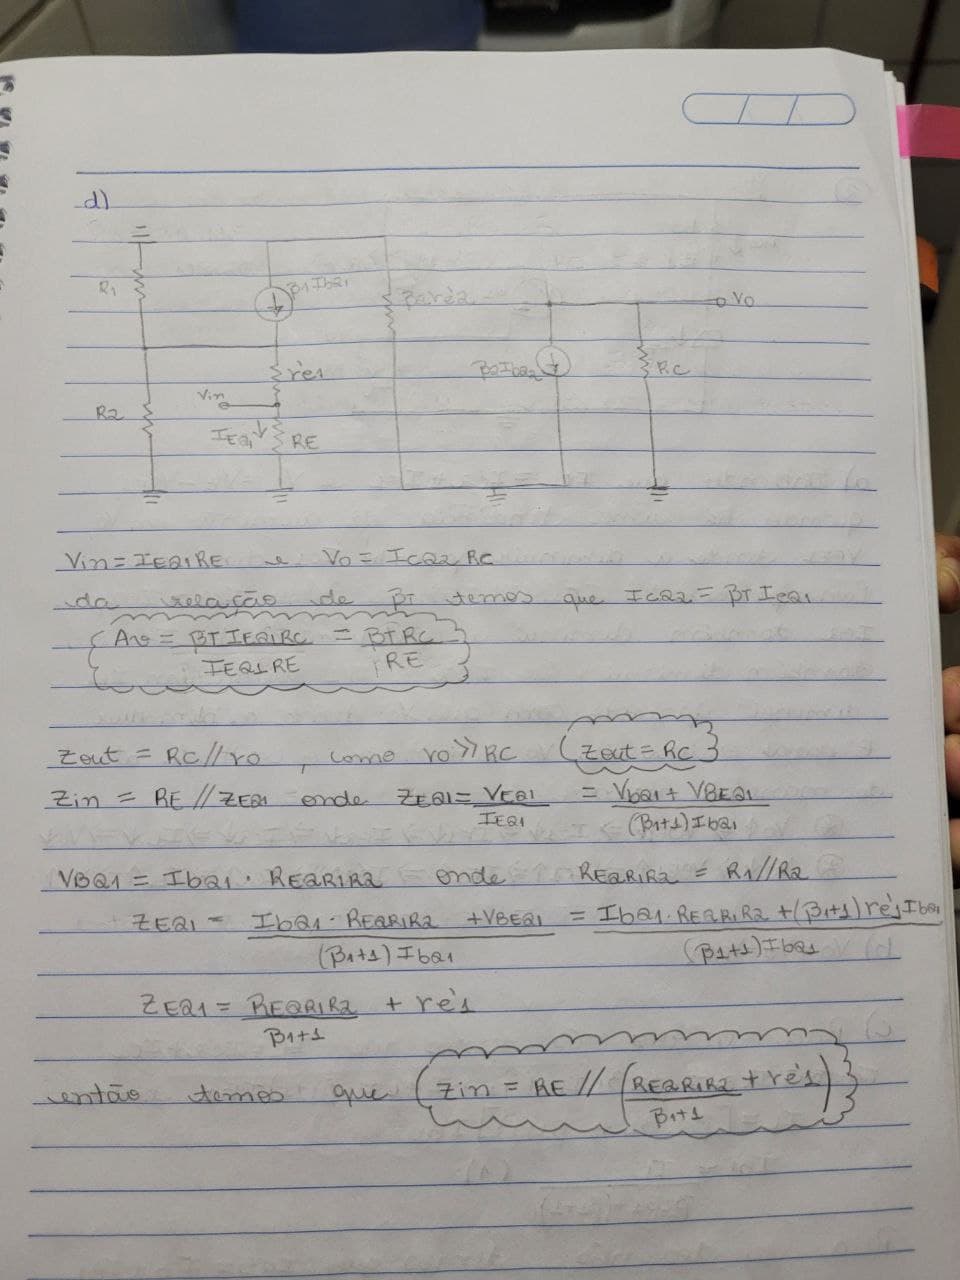 d)
R1
β1Ibq1
βare'2
Vo
re'1
βaIbq2
RC
Vin
R2
IEQ1
RE
Vin = IEQ1RE e Vo = ICQ2 RC
da relação de βT temos que ICQ2 = βTIEQ1
Av = βTIEQ1RC / IEQ1RE = βTRC / RE
Zout = RC//ro , como ro>>RC Zout = RC
Zin = RE//ZEQ1 onde ZEQ1 = VEQ1 / IEQ1 = VbQ1 + VBEQ1 / (β1+1)IbQ1
VBQ1 = IbQ1 . REQR1R2 onde REQR1R2 = R1//R2
ZEQ1 = IbQ1 . REQR1R2 + VBEQ1 / (β1+1)IbQ1 = IbQ1 . REQR1R2 + (β1+1)re'1IbQ1 / (β1+1)IbQ1
ZEQ1 = REQR1R2 / β1+1 + re'1
então temos que Zin = RE // (REQR1R2 / β1+1 + re'1)